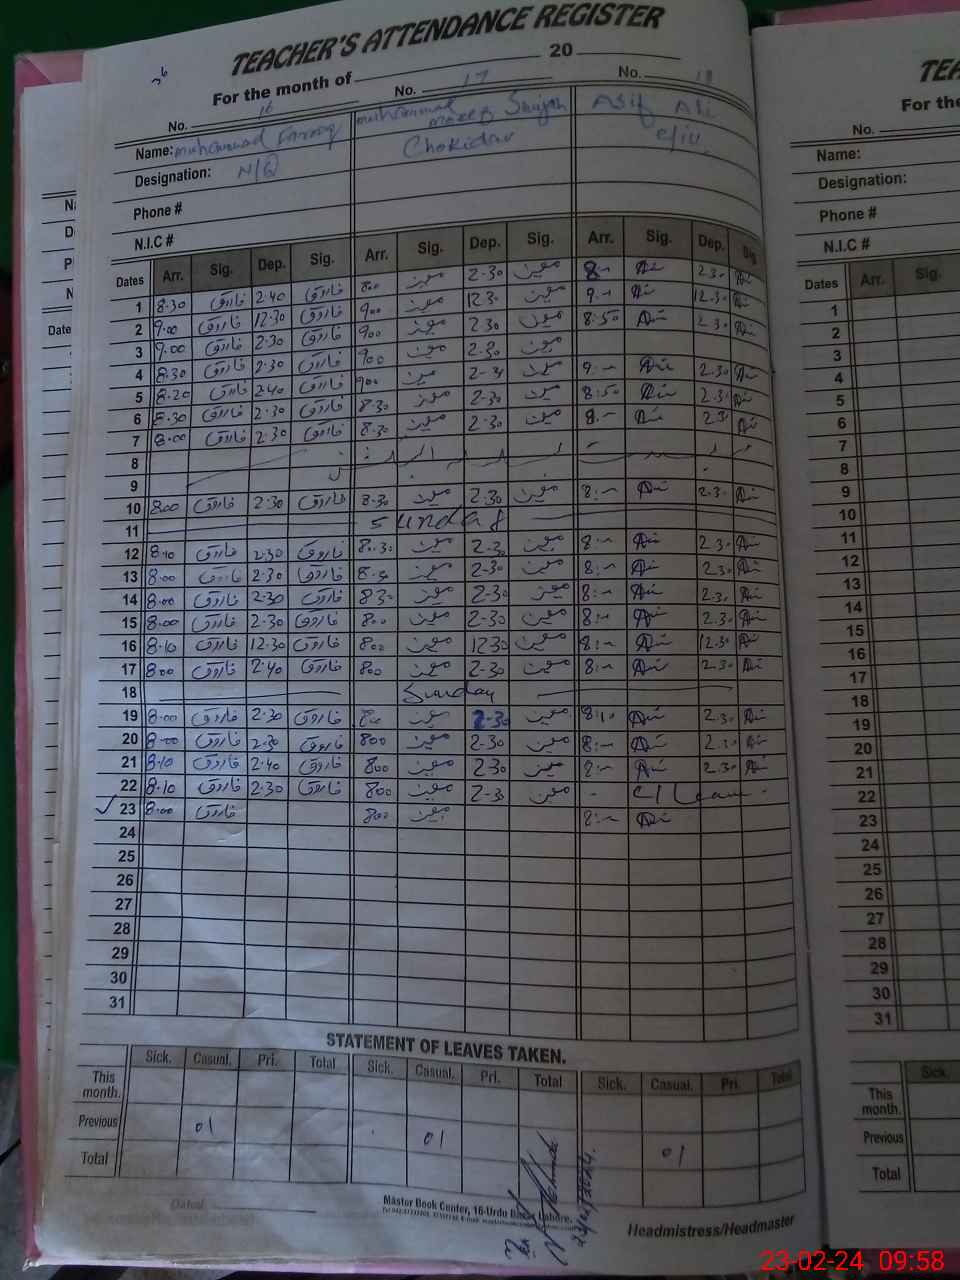 TEACHER'S ATTENDANCE REGISTER
For the month of 20
No. 16 No. 17 No. 18
Name: muhammad farooq muhammad Asif Ali
Designation: N/Q Chokidar c/iv
Phone #
N.I.C #
Dates Arr. Sig. Dep. Sig. Arr. Sig. Dep. Sig. Arr. Sig. Dep. Sig
1 8.30 فاروق 2.40 فاروق 800 معین 2-30 معین 8:- 2.30
2 9.00 فاروق 12.30 فاروق 900 معین 12 30 معین 9:- 12.30
3 9.00 فاروق 2.30 فاروق 900 معین 2 30 معین 8:50 2.30
4 8.30 فاروق 2.30 فاروق 900 معین 2.30 معین
5 8.20 فاروق 2.40 فاروق 900 معین 2-30 معین 9:- 2.30
6 8.30 فاروق 2.30 فاروق 8.30 معین 2-30 معین 8:50 2.30
7 8.00 فاروق 2.30 فاروق 8.30 معین 2-30 معین 8:- 2.30
8
9
10 8.00 فاروق 2.30 فاروق 8.30 معین 2.30 معین 8:- 2.30
11 Sunday
12 8.10 فاروق 2.30 فاروق 8.30 معین 2-30 معین 8:- 2.30
13 8.00 فاروق 2.30 فاروق 8.30 معین 2-30 معین 8:- 2.30
14 8.00 فاروق 2.30 فاروق 8.30 معین 2-30 معین 8:- 2.30
15 8.00 فاروق 2.30 فاروق 800 معین 2-30 معین 8:- 2.30
16 8.10 فاروق 12.30 فاروق 800 معین 12 30 معین 8:- 12.30
17 8.00 فاروق 2.40 فاروق 800 معین 2-30 معین 8:- 2.30
18 Sunday
19 8.00 فاروق 2.30 فاروق 800 معین 2-30 معین 8:10 2.30
20 8.00 فاروق 2.30 فاروق 800 معین 2-30 معین 8:- 2.30
21 8.10 فاروق 2.40 فاروق 800 معین 2 30 معین 8:- 2.30
22 8.10 فاروق 2.30 فاروق 800 معین 2-30 معین - C/Leave -
23 8.00 فاروق 800 معین 8:-
24
25
26
27
28
29
30
31
STATEMENT OF LEAVES TAKEN.
Sick. Casual. Pri. Total Sick. Casual. Pri. Total Sick. Casual. Pri. Total
This month.
Previous 01 01 01
Total
Dated
Master Book Center, 16-Urdu Bazar Lahore.
Headmistress/Headmaster
TEA
For the
No.
Name:
Designation:
Phone #
N.I.C #
Dates Arr. Sig.
1
2
3
4
5
6
7
8
9
10
11
12
13
14
15
16
17
18
19
20
21
22
23
24
25
26
27
28
29
30
31
Sick.
This month.
Previous
Total
23-02-24 09:58